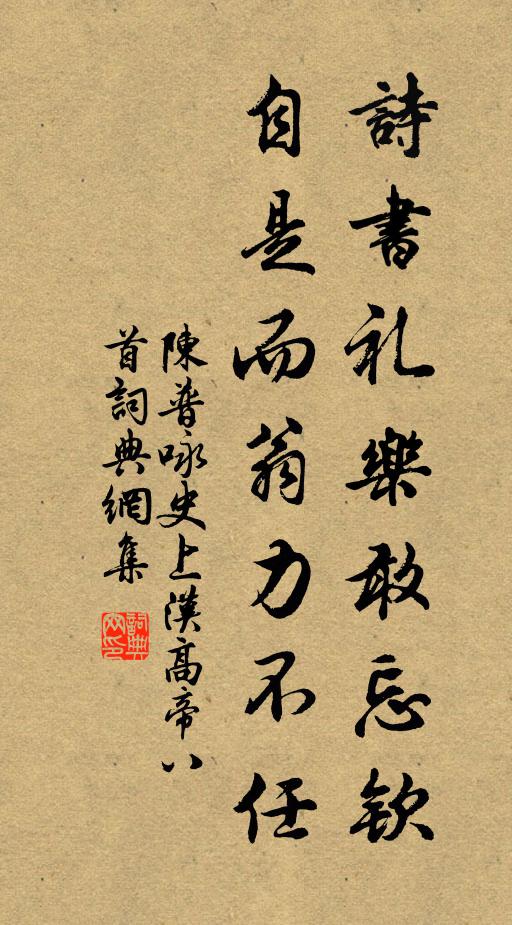 詩書礼樂敢忘欽
自是而翁力不任
陳普咏史上漢高帝八
首詞典網集
詞典網印